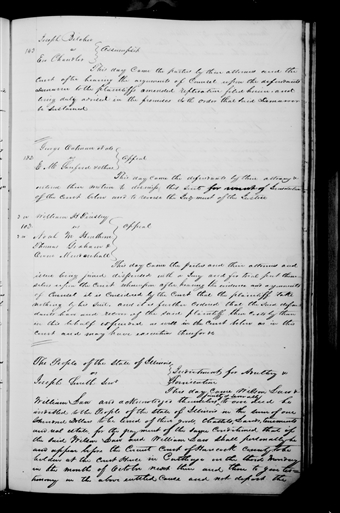 Joseph Belcher
102 vs } Assumpsit
Ex Chandler
This day Came the parties by their attornies and the
Court after hearing the arguments of Counsel upon the defendants
demurrer to the plaintiffs amended replication filed herein and
being duly advised in the premises do order that said demurrer
be sustained
vs } Appeal
E. M.
This day came the defendants by their attorney &
enters their motion to dismiss this suit for want of Jurisdiction
of the Court below and to reverse the Judgment of the Justice
William H
103 vs } Appeal
Noah M
Thomas Graham &
This day came the parties and their attornies and
issue being joined dispensed with a Jury and for trial put themselves
upon the Court whereupon after hearing the evidence and arguments
of Counsel it is Considered by the Court that the plaintiff take
nothing by his suit and it is further ordered that the said defendants
have and recover of the said plaintiff their costs by them
in this behalf expended as well in the Court below as in this
Court and may have execution therefor
The People of the State of Illinois
vs } Indictments for Adultery &
Joseph Smith Senr Fornication
This day Came Wilson Law &
William Law and acknowledge themselves to owe and be
indebted to the People of the State of Illinois in the sum of one
thousand dollars to be levied of their goods, Chattels, Lands, tenements
and real estate for the payment of the same Conditioned that if
the said Wilson Law and William Law shall personally be
and appear before the Circuit Court of Hancock County to be
holden at the Court House in Carthage on the third Monday
in the month of October next then and there to give
in the above entitled Cause and not depart the